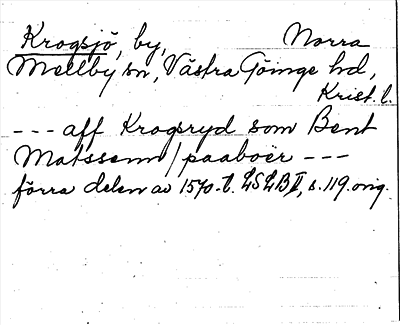 Krogsjö, by, Norra
Mellby sn, Västra Göinge hd,
Krist. l.
--- aff Krogsryd som Bent
Matssenn / paaboer ---
förra delen av 1570-t. LSLB II, s. 119. orig.